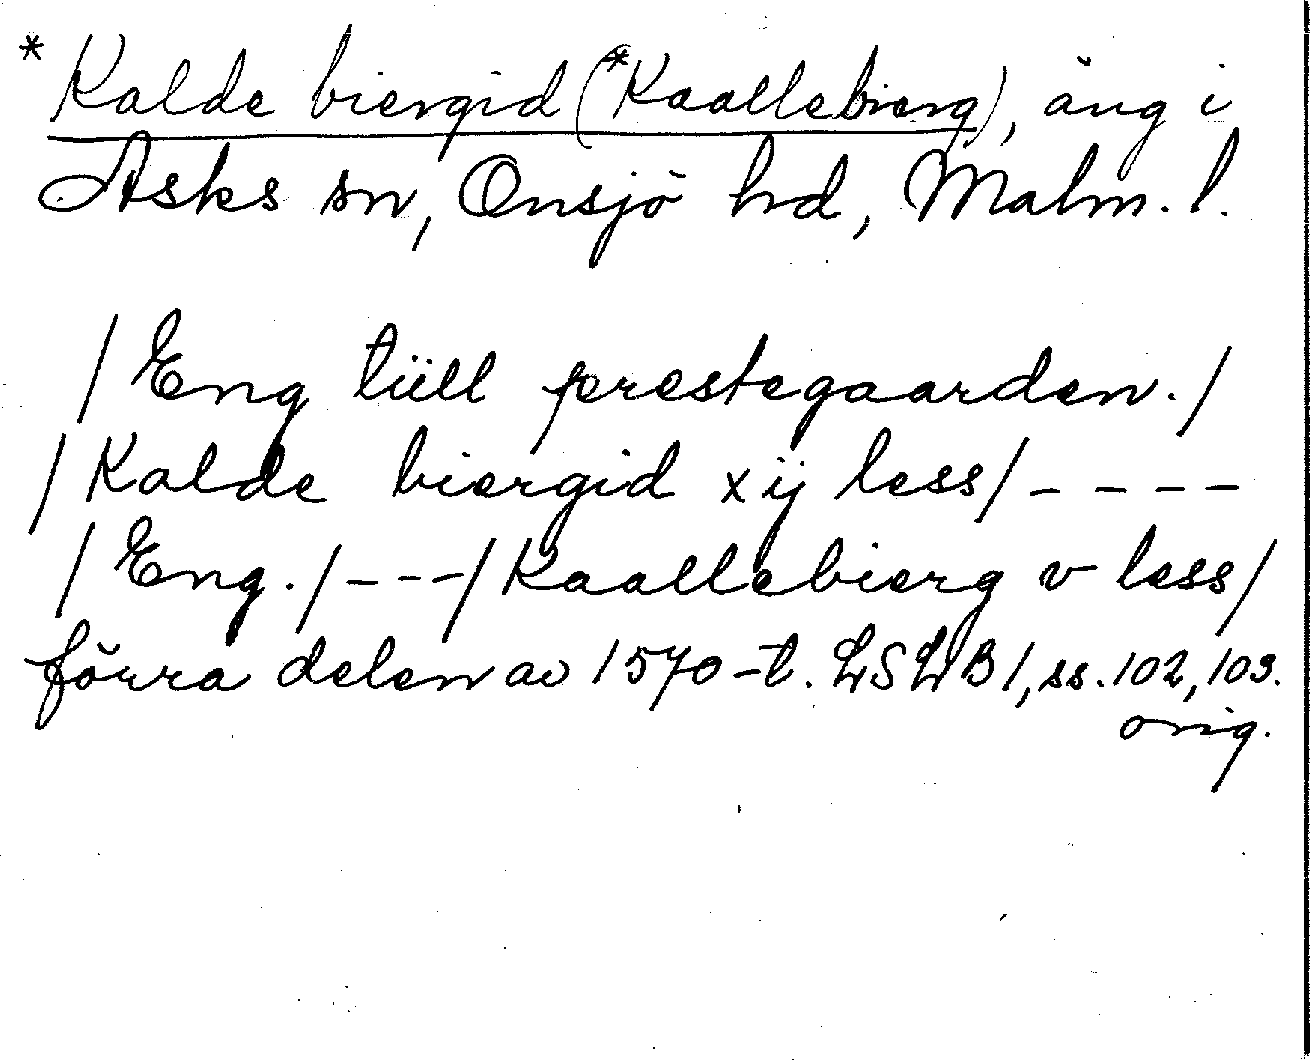 *Kalde biergid (*Kaallebierg), äng i
Asks sn, Onsjö hd, Malm. l.
/Eng tüll prestegaarden./
/Kalde biergid xij less/ - - - -
/Eng./ - - - /Kaallebierg v less/
förra delen av 1570-t. LSLB1, ss. 102, 103.
orig.